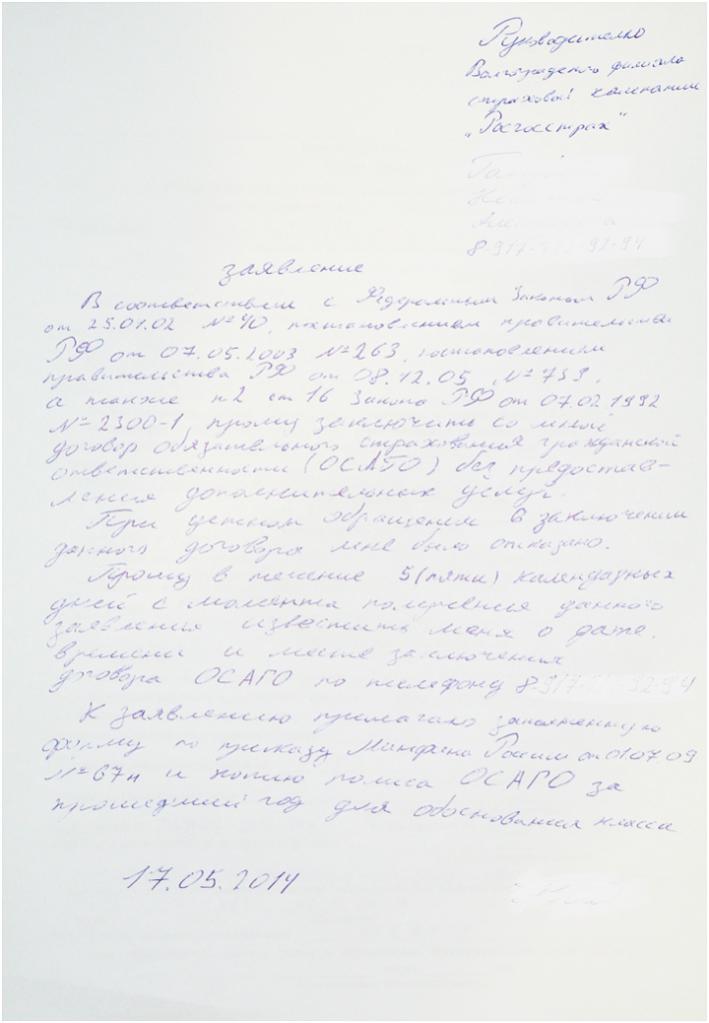 Руководителю
Волгоградского филиала
страховой компании
„Росгосстрах"
заявление
В соответствием с Федеральным Законом РФ
от 25.01.02 №40, постановлением правительства
РФ от 07.05.2003 №263, постановлением
правительства РФ от 08.12.05, №739,
а также п2 ст 16 Закона РФ от 07.02 1992
№ 2300-1, прошу заключить со мной
договор обязательного страхования гражданской
ответственности (ОСАГО) без предостав-
ления дополнительных услуг.
При устном обращении в заключении
данного договора мне было отказано.
Прошу в течение 5(пяти) календарных
дней с момента получения данного
заявления известить меня о дате,
времени и месте заключения
договора ОСАГО по телефону 8-917- 92-94
К заявлению прилагаю заполненную
форму по приказу Минфина России от 01.07.09
№67н и копию полиса ОСАГО за
прошедший год для обоснования класса
17.05.2014